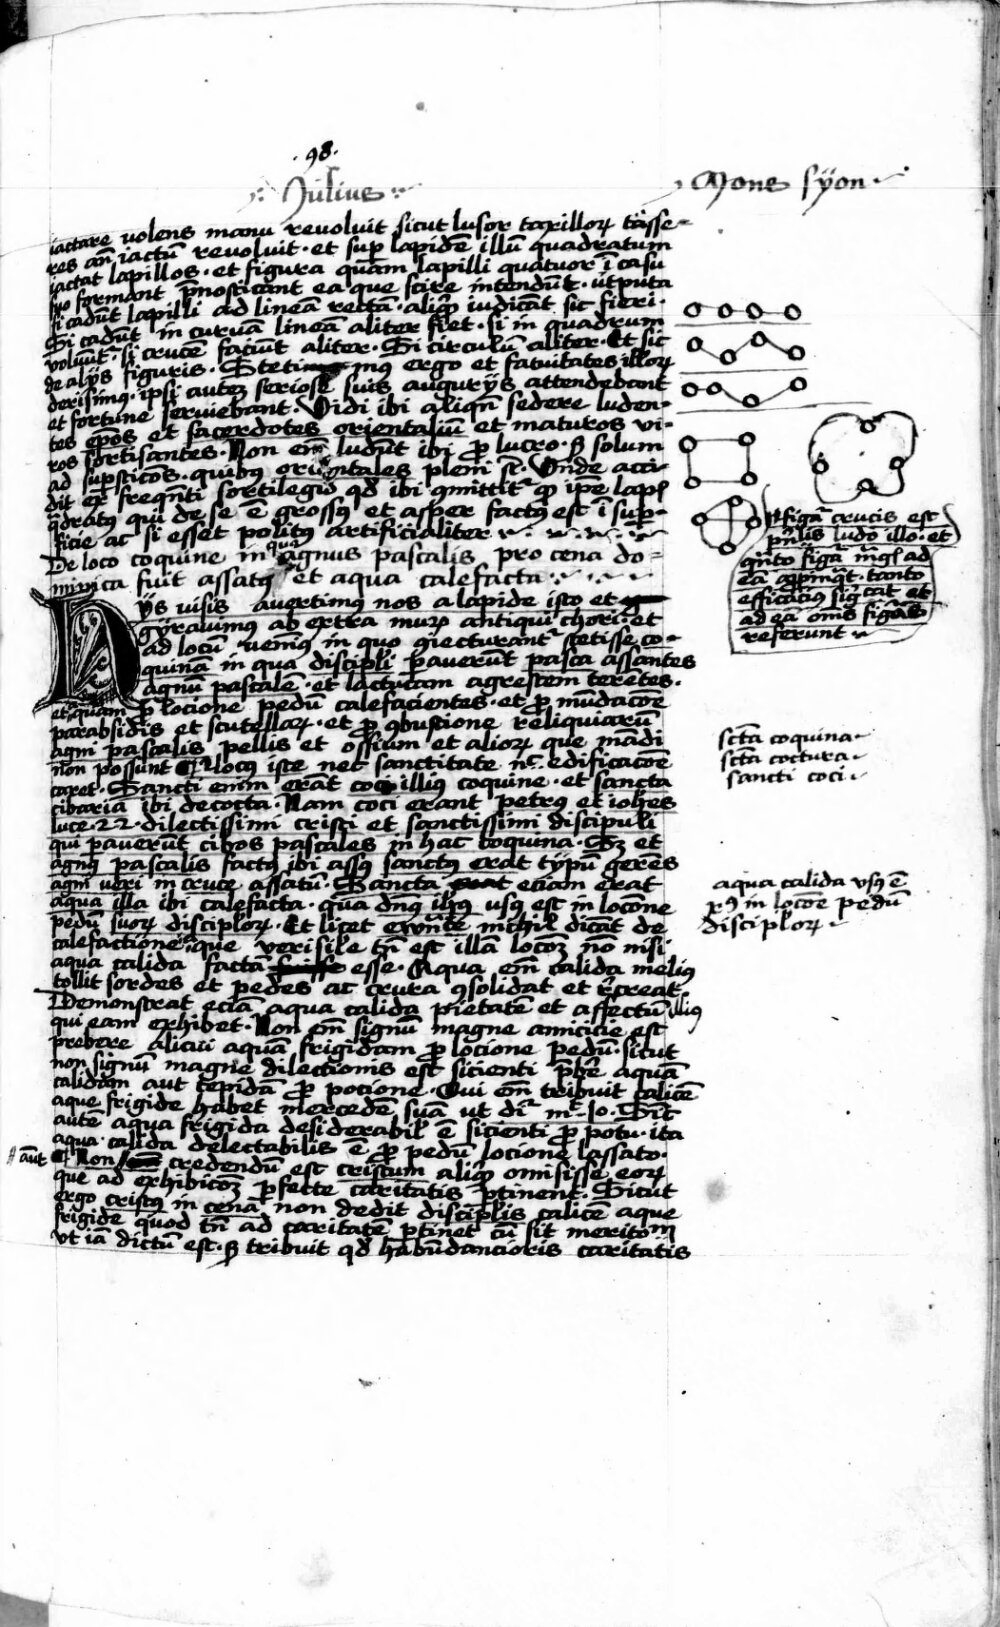 .98.
Julius
Mons syon
iactare volens manu revoluit sicut lusor taxilloꝝ tasse-
res an̄ iactū revoluit · et sup lapidē illū quadratum
iactat lapillos · et figura quam lapilli quatuor ī casu
suo formant p̄nosticant ea que scire intendūt · utputa
si cadūt lapilli ad lineā rectā · aliqd iudicāt sic fieri ·
Si cadūt in curvā lineā aliter fiet · si in quadrum
voluūt² · si crucem faciūt aliter · Si circulū aliter · Et sic
de alijs figuris · Stetimus ergo et fatuitates illoꝝ
derisimꝰ · ipsi autem seriose suis augurijs attendebant
et fortune serviebant · Vidi ibi aliqn̄ sedere luden-
tes ep̄os et sacerdotes orientaliū et maturos vi-
ros sortisantes · Non em̄ ludūt ibi ꝓ lucro · sꝫ solum
ad supsticōes · quibꝰ orientales pleni sūt · Vnde acci-
dit ex freqn̄ti sortilegio qd ibi ꝯmittitᷣ qd ip̄e lapis
qdratꝰ qui de se ē grossꝰ et asper factꝰ est ī sup-
ficie ac si esset politꝰ artificialiter
De loco coquine in quo agnus pascalis pro cena do-
minica fuit assatꝰ et aqua calefacta
Hijs visis avertimus nos a lapide isto et
gyravimus ab extra muꝝ antiqui chori · et
ad locū venimꝰ in quo ꝯiecturantᷣ stetisse co-
quinā in qua discipli paverūt pasca assantes
agnū pascalē · et lactucam agrestem terētes ·
et aquam ꝓ locione pedū calefacientes · et ꝓ mūdacōe
parabsidis et scutellaꝝ · et ꝓ ꝯbustione reliquiarū
agni pascalis pellis et ossium et alioꝝ que mādi
non possunt Locꝰ iste nec sanctitate nec edificacōe
caret · Sancti enim erāt coci illiꝰ coquine · et sancta
cibaria ibi decocta · Nam coci erant petrꝰ et ioh̄es
luce · 22 · dilectissimi cristi et sanctissimi discipuli
qui paverūt cibos pascales in hac coquina · Sꝫ et
agnꝰ pascalis factꝰ ibi assꝰ sanctꝰ erat typū gerēs
agni veri in cruce assatū · Sancta etiam erat
aqua illa ibi calefacta · qua dn̄s ihꝰ usꝰ est in locōne
pedū suoꝝ disciploꝝ · Et licet ewāte nichil dicāt de
calefactione aque verisile tn̄ est illā locōꝫ nō nisi
aqua calida factā esse · Aqua em̄ calida meliꝰ
tollit sordes et pedes ac crura ꝯsolidat et recreat
Demonstrat eciā aqua calida pietatē et affectū illiꝰ
qui eam exhibet · Non em̄ signū magne amicicie est
prebere alicui aquā frigidam ꝓ locione pedū · sicut
non signū magne dilectionis est sicienti p̄bere aquā
calidam aut tepidā ꝓ pocione · Qui em̄ tribuit calicē
aque frigide habet mercedē suā ut dicitᷣ mᵗ 10 · Sic
autē aqua frigida desiderabilꝭ ē sicienti ꝓ potu · ita
aqua calida delectabilis ē ꝓ pedū locione lassato ·
Non aūt credendū est cristum aliqd omisisse eoꝝ
que ad exhibicōꝫ pfecte caritatis ptinent · Sicut
ergo cristꝰ in cena non dedit disciplis calicē aque
frigide quod tn̄ ad caritatē ptinet cū sit meritoriū
ut iā dictū est · sꝫ tribuit qd habūdancioris caritatis
Figᷓa crucis est
pn̄lis ludo illo · et
qn̄to figᷓa magꝭ ad
eā apꝓpinqᷓt · tanto
efficaciꝰ significat et
ad eā om̄s figᷓas
referunt
sctā coquina
sctā coctura
sancti coci
aqua calida usꝰ ē
in locōe pedū
disciploꝝ